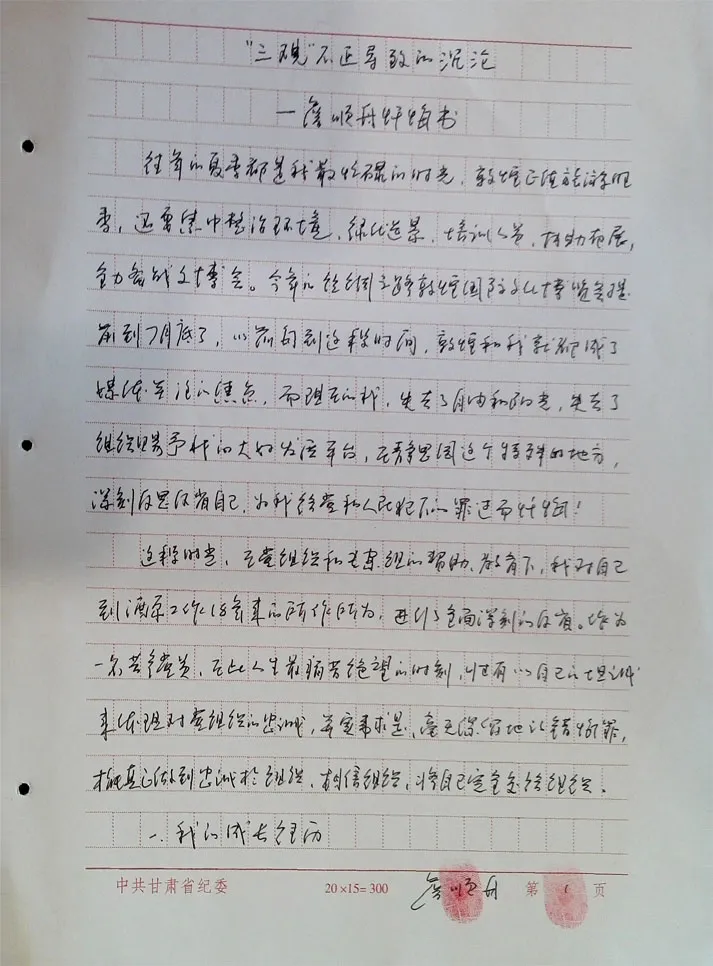 “三观”不正导致的沉沦
—詹顺舟忏悔书
往年的夏季都是我最忙碌的时光，敦煌正值旅游旺
季，还要集中整治环境，绿化造景，培训人员，
全力备战文博会。今年的丝绸之路敦煌国际文化博览会提
前到7月底了，以前每到这段时间，敦煌和我就都成了
媒体关注的焦点，而现在的我，失去了自由和阳光，失去了
组织赐予我的大好发展平台，在静思园这个特殊的地方，
深刻反思反省自己，为我给党和人民犯下的罪过而忏悔！
这段时光，在党组织和专案组的帮助、教育下，我对自己
到酒泉工作18年来的所作所为，进行了全面深刻的反省。作为
一名共产党员，在此人生最痛苦绝望的时刻，只有以自己的坦诚
来体现对党组织的忠诚，实事求是、毫无保留地认错悔罪，
才能真正做到忠诚于组织、相信组织，将自己完全交给组织。
一、我的成长经历
中共甘肃省纪委 20×15=300 詹顺舟 第 1 页